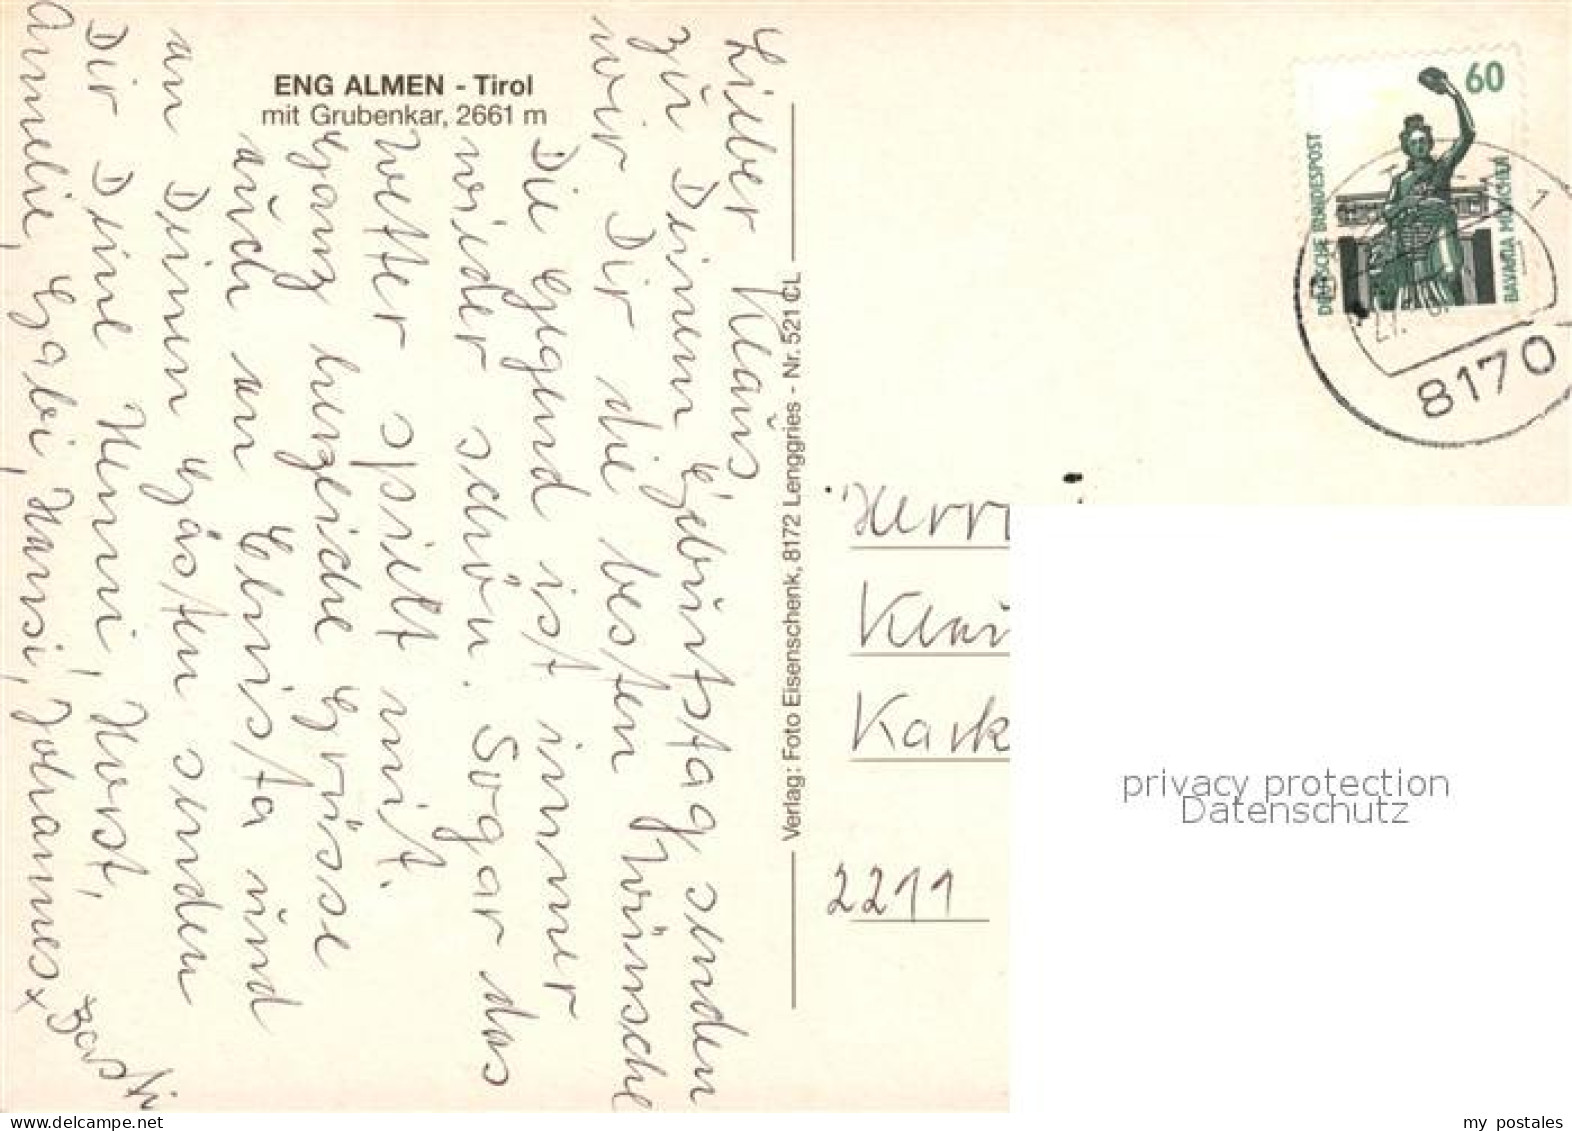 ENG ALMEN - Tirol
mit Grubenkar, 2661 m
Lieber Klaus,
zu Deinem Geburtstag senden
wir Dir die besten Wünsche
Die Gegend ist immer
wieder schön. Sogar das
Wetter spielt mit.
Ganz herzliche Grüsse
auch an Christa und
an Deinen Gästen senden
Dir Deine Henni, Horst,
Annelie, Gabi, Hansi, Johannes x
x Basti
Verlag: Foto Eisenschenk, 8172 Lenggries - Nr. 521 CL
60
DEUTSCHE BUNDESPOST
BAVARIA MÜNCHEN
1
8170
Herrn
Klau
Kark
2211
privacy protection
Datenschutz
www.delcampe.net
my_postales